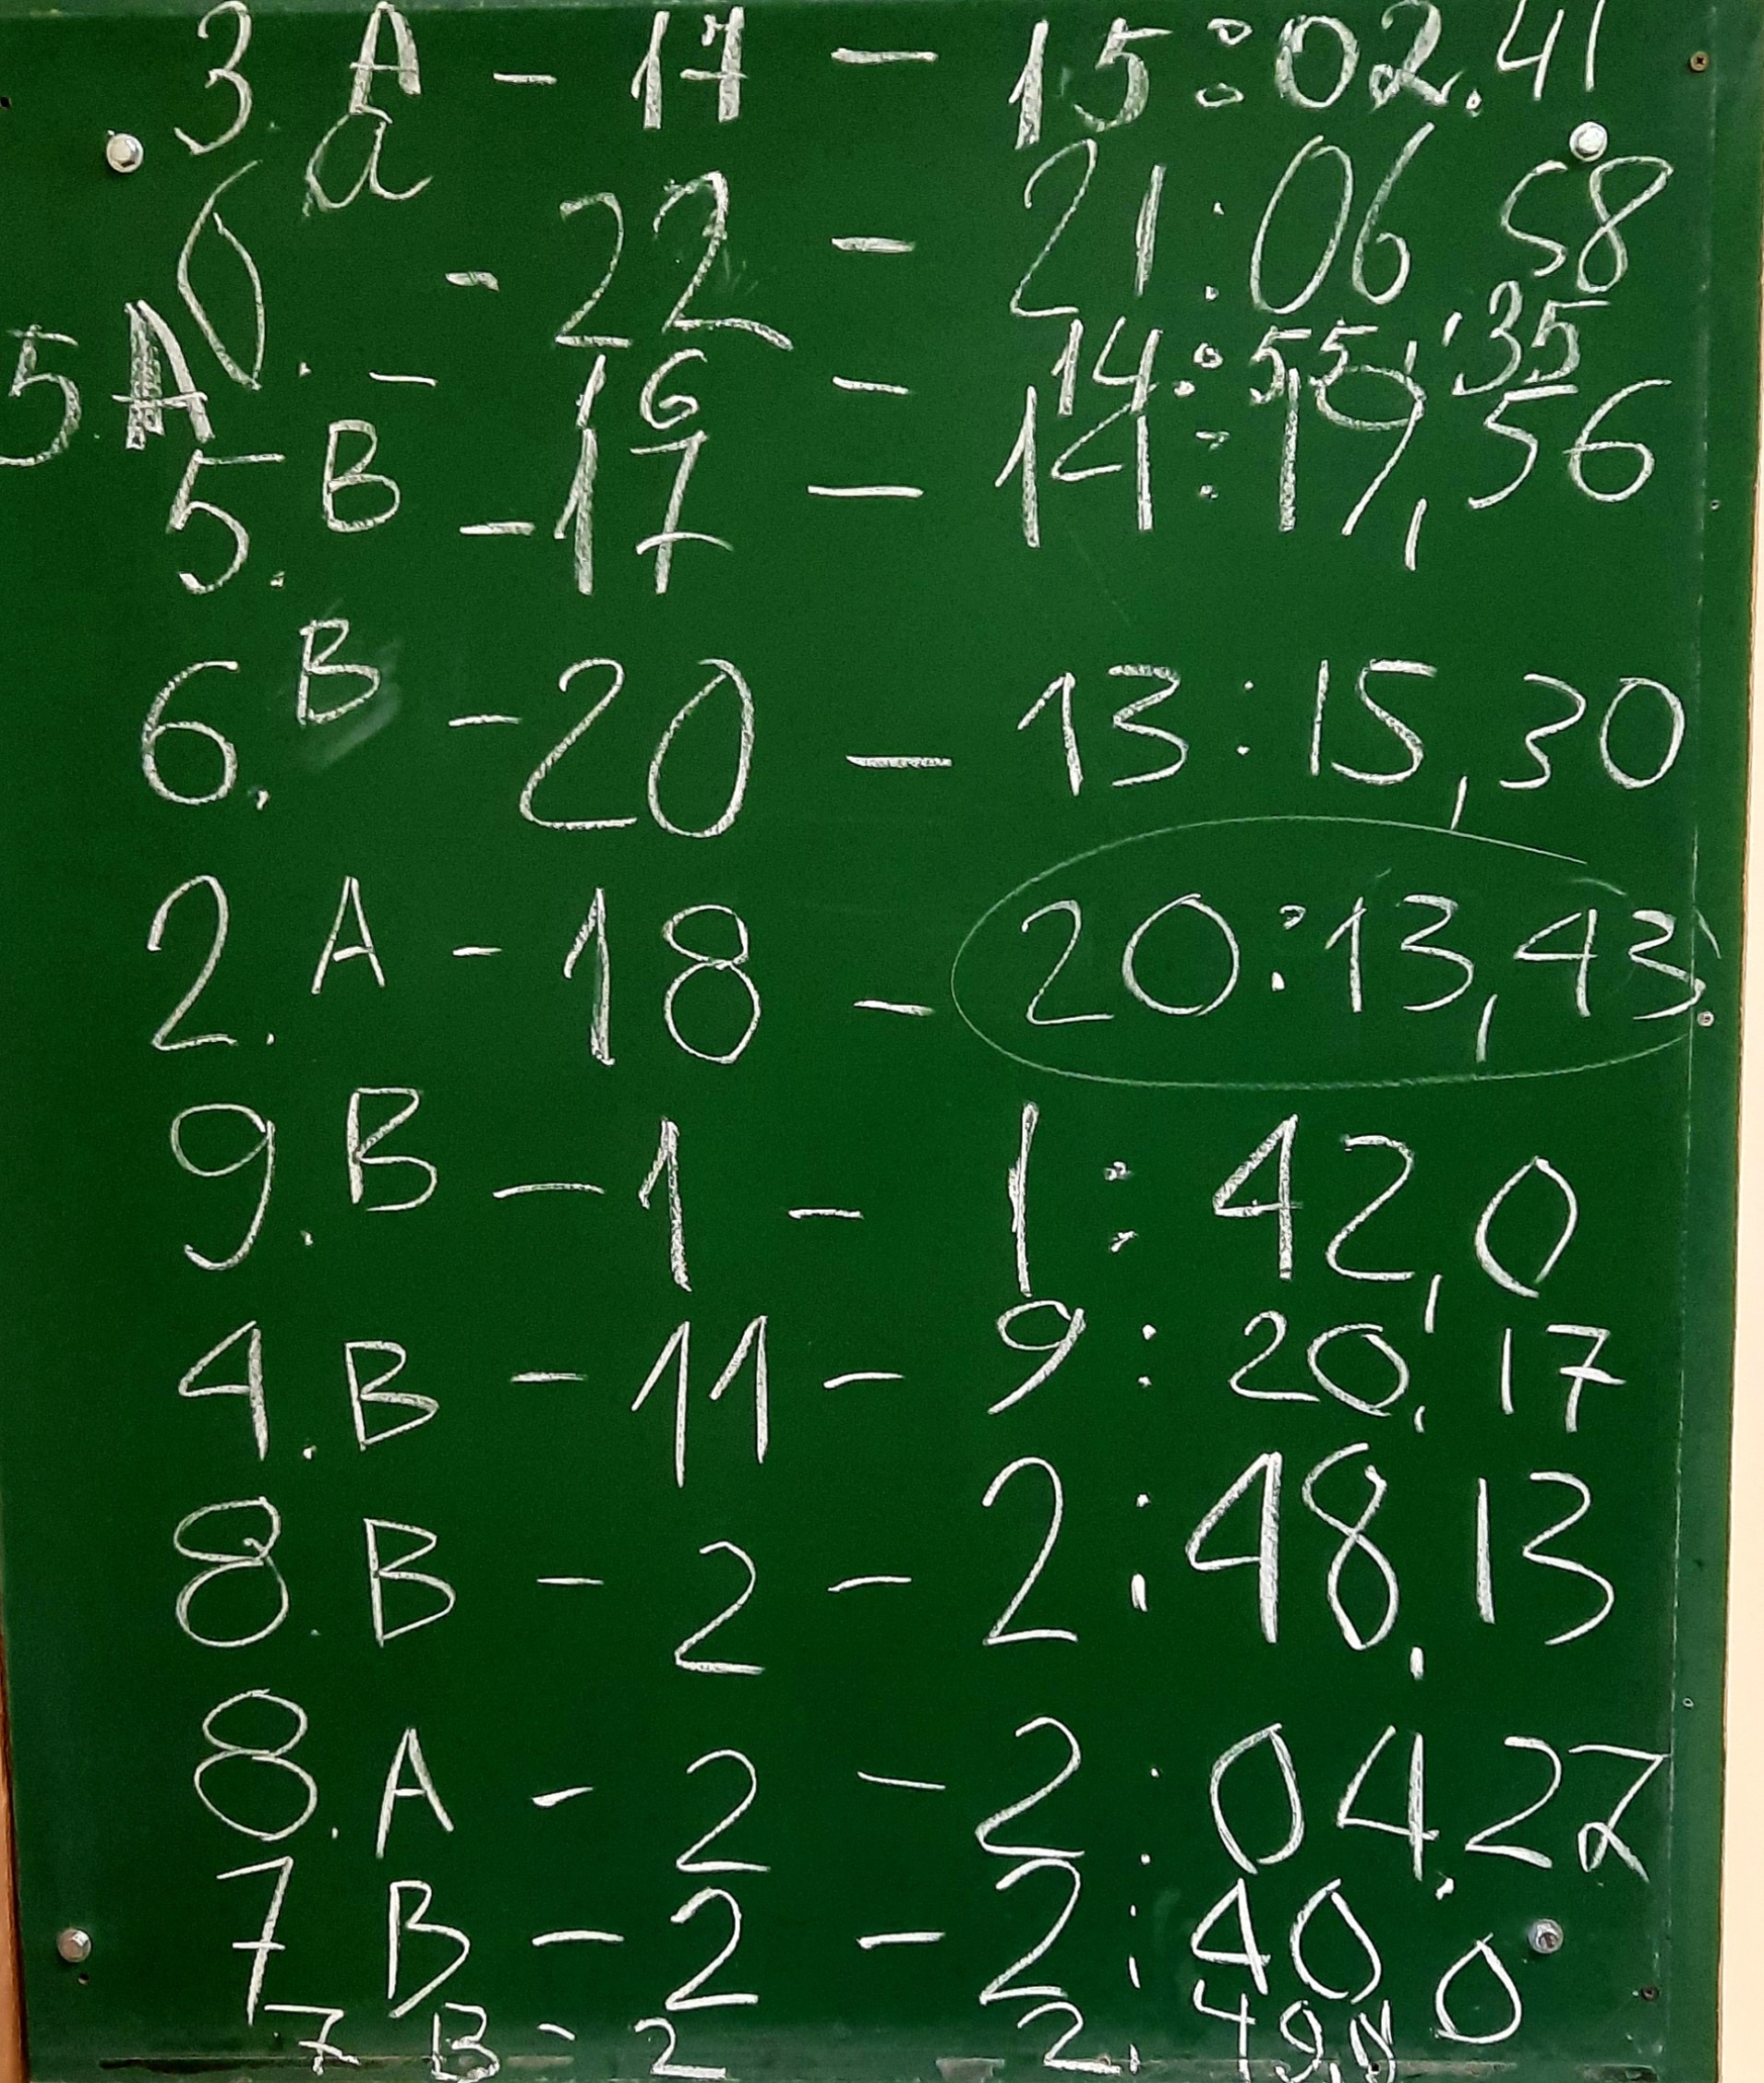 3 A - 17 - 15:02.41
6. a - 22 - 21:06 58
5 A - 16 - 14:55,35
5. B - 17 - 14:19,56
6. B - 20 - 13:15,30
2. A - 18 - 20:13,43
9. B - 1 - 1:42,0
4. B - 11 - 9:20, 17
8. B - 2 - 2:48,13
8. A - 2 - 2:04.27
7 B - 2 - 2:40 0
7 B - 2 2:49,